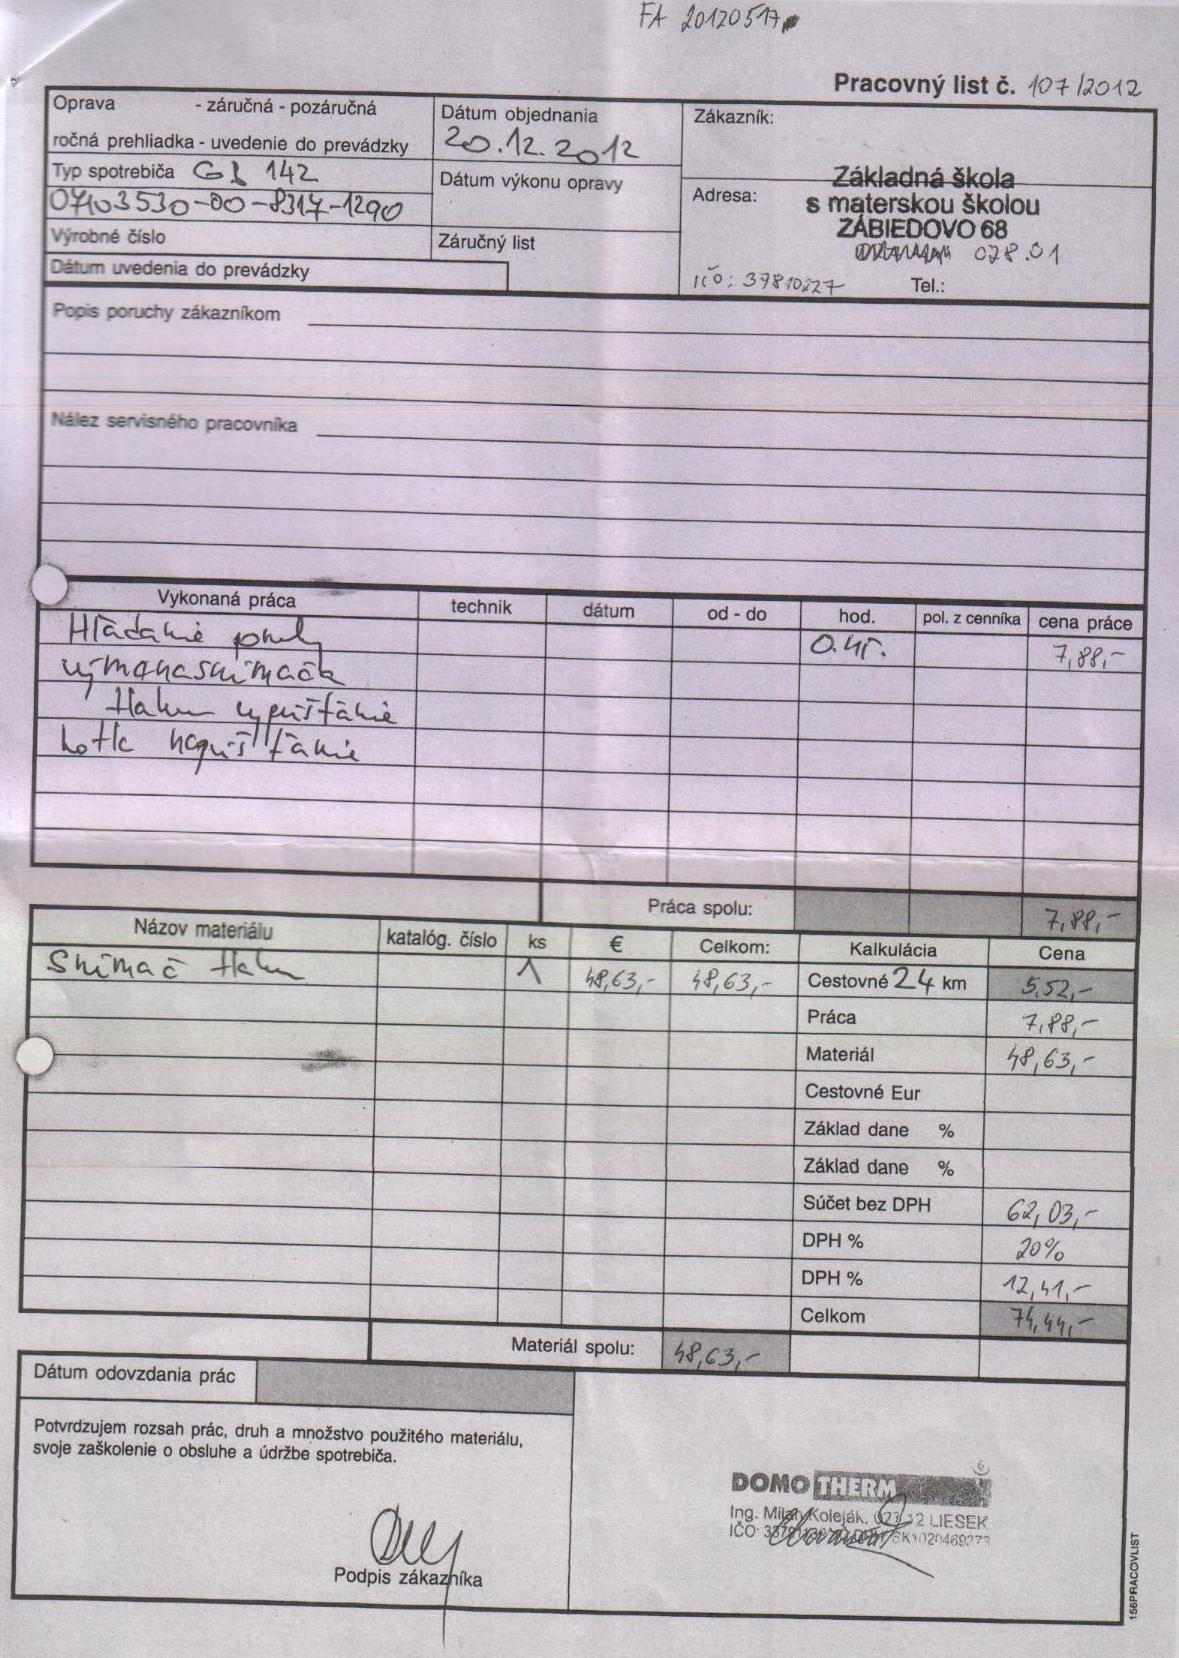 FA 20120517
Pracovný list č. 107/2012
Oprava - záručná - pozáručná
ročná prehliadka - uvedenie do prevádzky
Dátum objednania
20.12.2012
Zákazník:
Typ spotrebiča 142
Dátum výkonu opravy
Adresa:
Základná škola
s materskou školou
ZÁBIEDOVO 68
028.01
Výrobné číslo
Záručný list
IČO: 37810227 Tel.:
Dátum uvedenia do prevádzky
Popis poruchy zákazníkom
Nález servisného pracovníka
Vykonaná práca technik dátum od - do hod. pol. z cenníka cena práce
Hľadanie 7,88,-
výmena snímača
tlaku vypúšťanie
kotla napúšťanie
Práca spolu: 7,88,-
Názov materiálu katalóg. číslo ks € Celkom: Kalkulácia Cena
Snímač tlaku 1 48,63,- 48,63,- Cestovné 24 km 5,52,-
Práca 7,88,-
Materiál 48,63,-
Cestovné Eur
Základ dane %
Základ dane %
Súčet bez DPH 62,03,-
DPH % 20%
DPH % 12,41,-
Celkom 74,44,-
Materiál spolu: 48,63,-
Dátum odovzdania prác
Potvrdzujem rozsah prác, druh a množstvo použitého materiálu,
svoje zaškolenie o obsluhe a údržbe spotrebiča.
Podpis zákazníka
DOMO THERM
Ing. Milan Koleják, 027 12 LIESEK
IČO
156PRACOVLIST